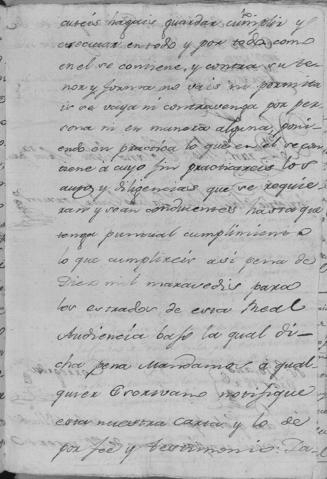 cuteis hagais guardar cumplir y
executar en todo y por todo como
en el se contiene, y contra su te-
nor y forma no vais ni permitais
se vaya ni contravenga por per
sona ni en manera alguna, poni
endo en practica lo que en el se con
tiene a cuyo fin practicareis los
autos y diligencias que se requie
ran y sean conducentes hasta que
tenga puntual cumplimiento
lo que cumplireis asi pena de
Diez mil maravedis para
los estrados de esta Real
Audiencia bajo la qual di-
cha pena Mandamos a qual
quier Escrivano notifique
esta nuestra Carta y lo de
por fee y testimonio. Da